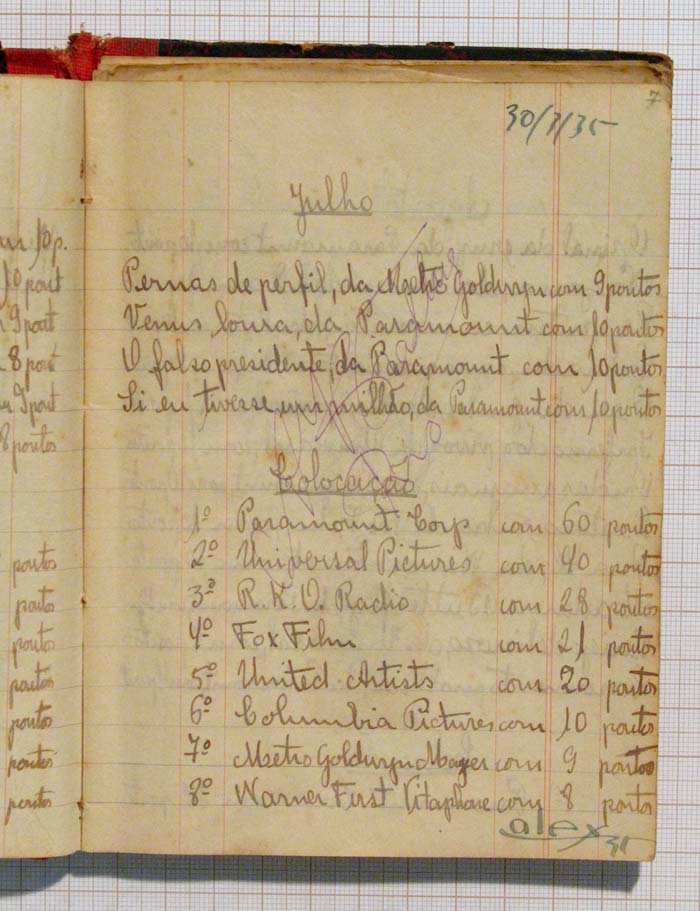 7
30/7/35
Julho
Pernas de perfil, da Metro Goldwyn com 9 pontos
Venus loura, da Paramount com 10 pontos
O falso presidente, da Paramount com 10 pontos
Si eu tivesse um milhão, da Paramount com 10 pontos
Colocação
1º Paramount Corp com 60 pontos
2º Universal Pictures com 40 pontos
3º R.K.O. Radio com 28 pontos
4º Fox Film com 21 pontos
5º United Artists com 20 pontos
6º Columbia Pictures com 10 pontos
7º Metro Goldwyn Mayer com 9 pontos
8º Warner First Vitaphone com 8 pontos
alex
35
10 p.
10 pont
9 pont
8 pont
9 pont
8 pontos
pontos
pontos
pontos
pontos
pontos
pontos
pontos